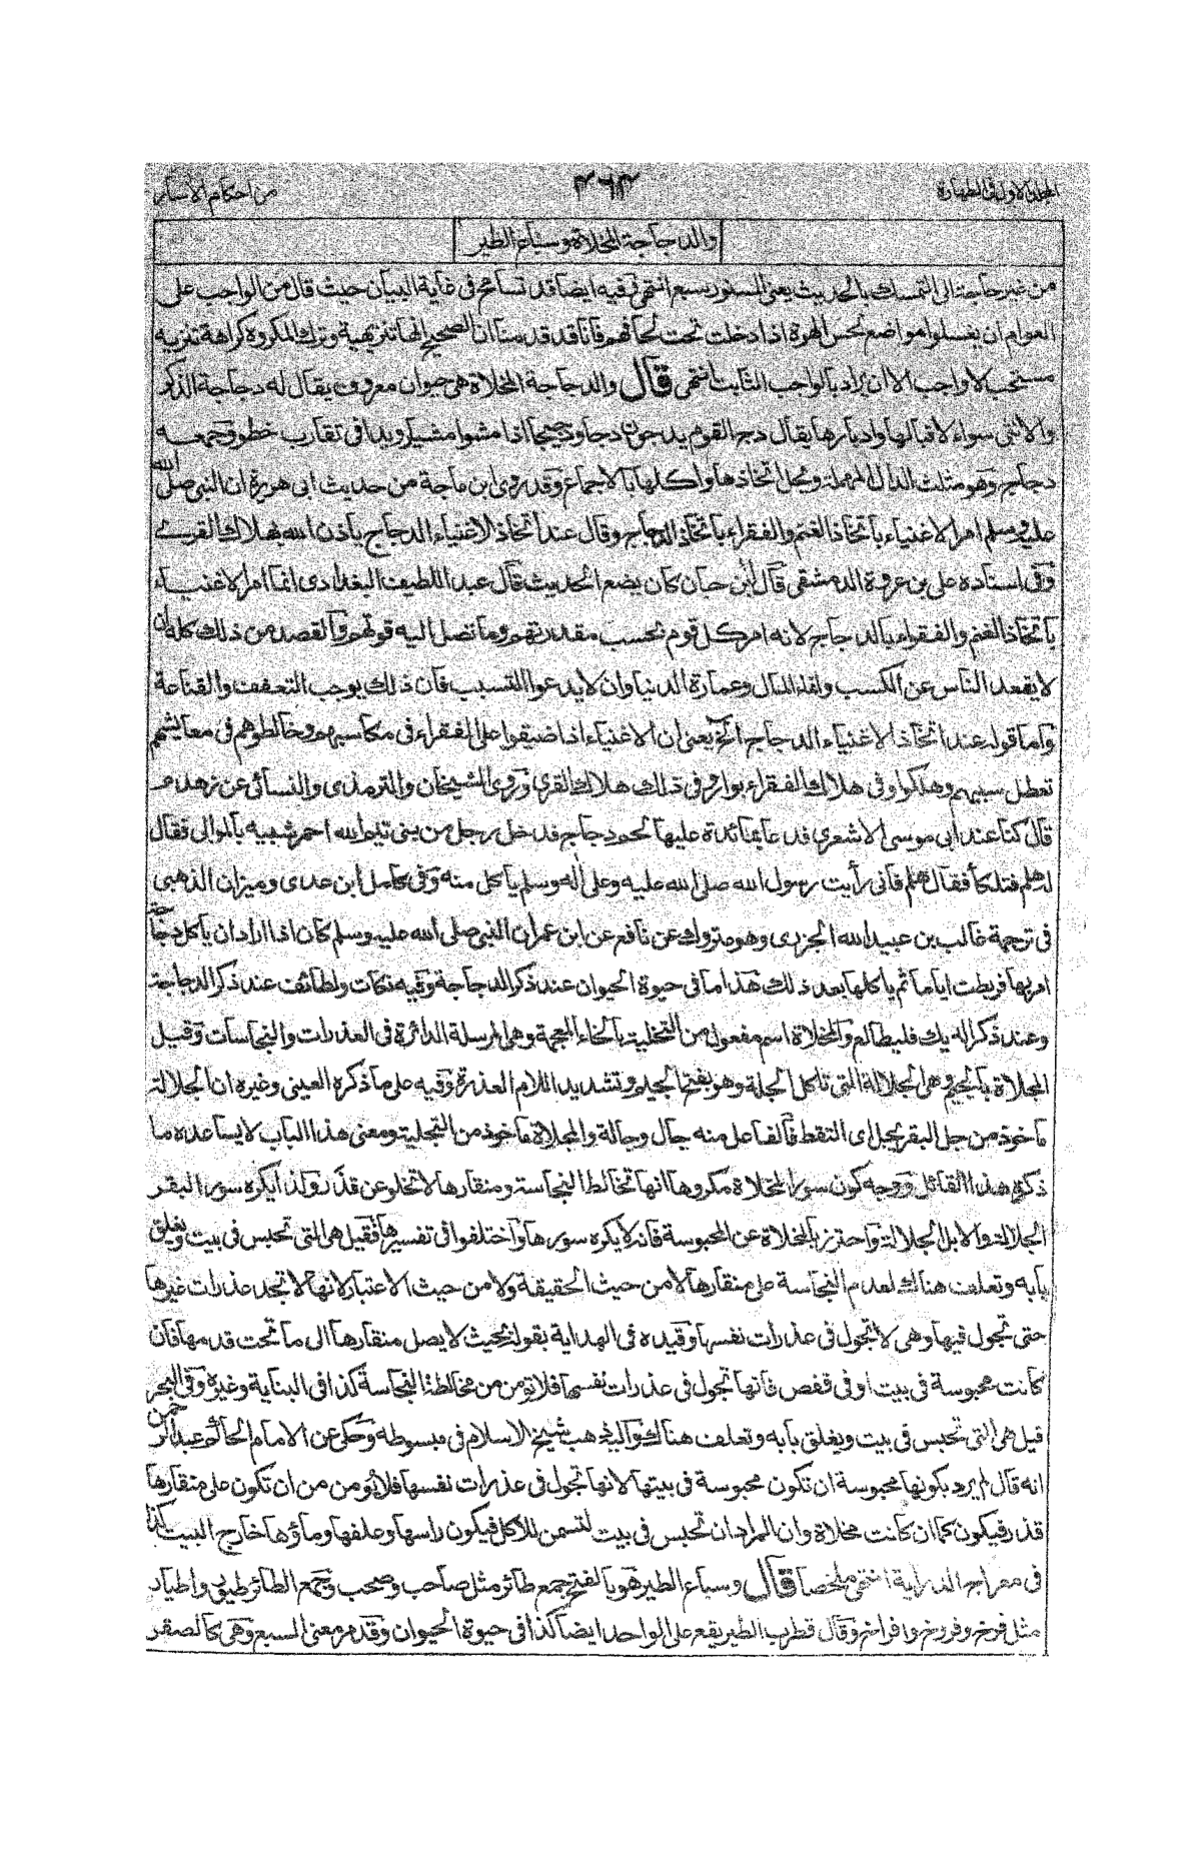 المجلد الاول فى الطهارة ٤٦٣ من احكام الاسآر
والدجاجة المخلاة وسباع الطير
من غير حاجة الى التمسك بالحديث يعنى السنور سبع انتهى وفيه ايضا قد تسامح فى غاية البيان حيث قال من الواجب على
العوام ان يغسلوا مواضع لحس الهرة اذا دخلت تحت لحافهم فانا قد قدمنا ان الصحيح انها تنزيهية وترك المكروه كراهة تنزيه
مستحب لا واجب الا ان يراد بالواجب الثابت انتهى قال والدجاجة المخلاة هى حيوان معروف يقال له دجاجة الذكر
والانثى سواء لاقبالها وادبارها يقال دج القوم يدجون دجا ودجيجا اذا مشوا مشيا رويدا فى تقارب خطو وجمعه
دجاج وهو مثلث الدال المهملة ويحل اتخاذها واكلها بالاجماع وقد روى ابن ماجة من حديث ابى هريرة ان النبى صلى الله
عليه وسلم امر الاغنياء باتخاذ الغنم والفقراء باتخاذ الدجاج وقال عند اتخاذ الاغنياء الدجاج ياذن الله بهلاك القرى
وفى اسناده على بن عروة الدمشقى قال ابن حبان كان يضع الحديث قال عبد اللطيف البغدادى انما امر الاغنياء
باتخاذ الغنم والفقراء بالدجاج لانه امر كل قوم بحسب مقدرتهم وما تصل اليه قوتهم والقصد من ذلك كله ان
لا يقعد الناس عن الكسب وانماء المال وعمارة الدنيا وان لا يدعوا التسبب فان ذلك يوجب التعفف والقناعة
واما قوله عند اتخاذ الاغنياء الدجاج الخ يعنى ان الاغنياء اذا ضيقوا على الفقراء فى مكاسبهم وخالطوهم فى معايشهم
تعطل سببهم وهلكوا وفى هلاك الفقراء بوار وفى ذلك هلاك القرى وروى الشيخان والترمذى والنسائى عن زهدم
قال كنا عند ابى موسى الاشعرى فدعا بمائدة عليها لحم دجاج فدخل رجل من بنى تيم الله احمر شبيه بالموالى فقال
له هلم فتلكأ فقال هلم فانى رأيت رسول الله صلى الله عليه وعلى اله وسلم ياكل منه وفى كامل ابن عدى وميزان الذهبى
فى ترجمة غالب بن عبيد الله الجزرى وهو متروك عن نافع عن ابن عمر ان النبى صلى الله عليه وسلم كان اذا اراد ان ياكل دجاجة
امر بها فربطت اياما ثم ياكلها بعد ذلك هذا ما فى حيوة الحيوان عند ذكر الدجاجة وفيه نكات ولطائف عند ذكر الدجاجة
وعند ذكر الديك فليطالع والمخلاة اسم مفعول من التخلية بالخاء المعجمة وهى المرسلة الدائرة فى العذرات والنجاسات وقيل
المجلاة بالجيم وهى الجلالة التى تاكل الجلة وهو بفتح الجيم وتشديد اللام العذرة وفيه على ما ذكره العينى وغيره ان الجلالة
ماخوذ من جل البقر يجل اى التقط فالفاعل منه جال وجالة والمجلاة ماخوذ من التجلية ومعنى هذا الباب لا يساعده ما
ذكره هذا القائل ووجه كون سور المخلاة مكروها انها تخالط النجاسة ومنقارها لا تخلو عن قذر ولذا يكره سور البقر
الجلالة والابل الجلالة واحترز بالمخلاة عن المحبوسة فانه لا يكره سورها واختلفوا فى تفسيرها فقيل هى التى تحبس فى بيت ويغلق
بابه وتعلف هناك لعدم النجاسة على منقارها لا من حيث الحقيقة ولا من حيث الاعتبار لانها لا تجد عذرات غيرها
حتى تجول فيها وهى لا تجول فى عذرات نفسها وقيده فى الهداية بقوله بحيث لا يصل منقارها الى ما تحت قدمها فان
كانت محبوسة فى بيت او فى قفص فانها تجول فى عذرات نفسها فلا يؤمن من مخالطة النجاسة كذا فى البناية وغيره وفى البحر
قيل هى التى تحبس فى بيت ويغلق بابه وتعلف هناك واليه ذهب شيخ الاسلام فى مبسوطه وحكى عن الامام الحاكم عبد الرحمن
انه قال لم يرد بكونها محبوسة ان تكون محبوسة فى بيتها لانها تجول فى عذرات نفسها فلا يؤمن من ان تكون على منقارها
قذر فيكون كما ان كانت مخلاة وان المراد ان تحبس فى بيت لتسمن للاكل فيكون راسها وعلفها وماؤها خارج البيت كذا
فى معراج الدراية انتهى ملخصا قال وسباع الطير هو بالفتح جمع طائر مثل صاحب وصحب وجمع الطائر طيور واطيار
مثل فرخ وفروخ وافراخ وقال قطرب الطير يقع على الواحد ايضا كذا فى حيوة الحيوان وقد مر معنى السبع وهى كالصقر